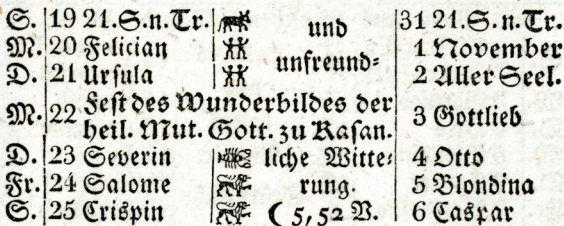 S. 19 21. S. n. Tr. und 31 21. S. n. Tr.
M. 20 Felician 1 November
D. 21 Ursula unfreund= 2 Aller Seel.
M. 22 Fest des Wunderbildes der heil. Mut. Gott. zu Kasan. 3 Gottlieb
D. 23 Severin liche Witte= 4 Otto
Fr. 24 Salome rung. 5 Blondina
S. 25 Crispin ( 5, 52 V. 6 Caspar